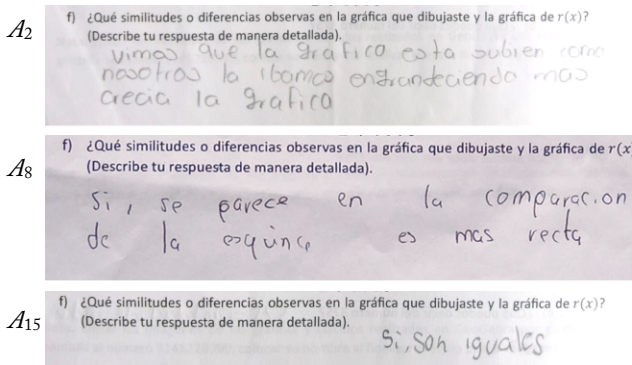 A2
f) ¿Qué similitudes o diferencias observas en la gráfica que dibujaste y la gráfica de r(x)?
(Describe tu respuesta de manera detallada).
vimos que la grafico esta subien como
nosotros la ibamos engrandeciendo mas
crecia la grafico
A8
f) ¿Qué similitudes o diferencias observas en la gráfica que dibujaste y la gráfica de r(x
(Describe tu respuesta de manera detallada).
Si, se parece en la comparacion
de la esquince es mas recta
A15
f) ¿Qué similitudes o diferencias observas en la gráfica que dibujaste y la gráfica de r(x)?
(Describe tu respuesta de manera detallada).
Si, son iguales